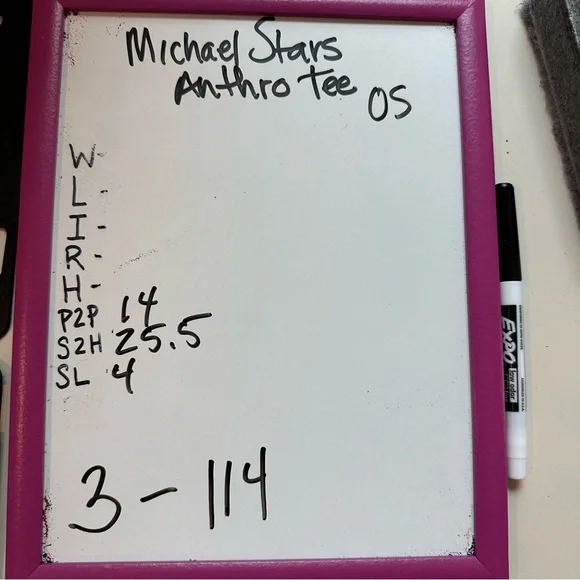 Michael Stars
Anthro Tee
OS
W-
L-
I-
R-
H-
P2P 14
S2H 25.5
SL 4
3-114
EXPO
low odor